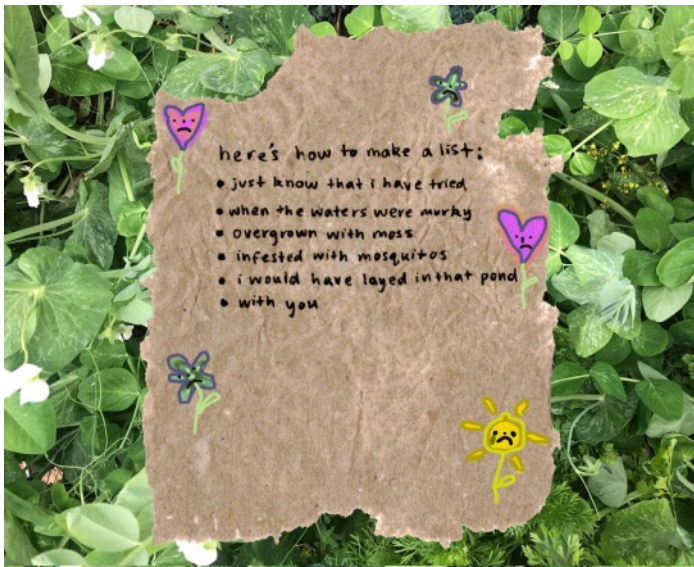 here's how to make a list:
• just know that i have tried
• when the waters were murky
• overgrown with moss
• infested with mosquitos
• i would have layed in that pond
• with you